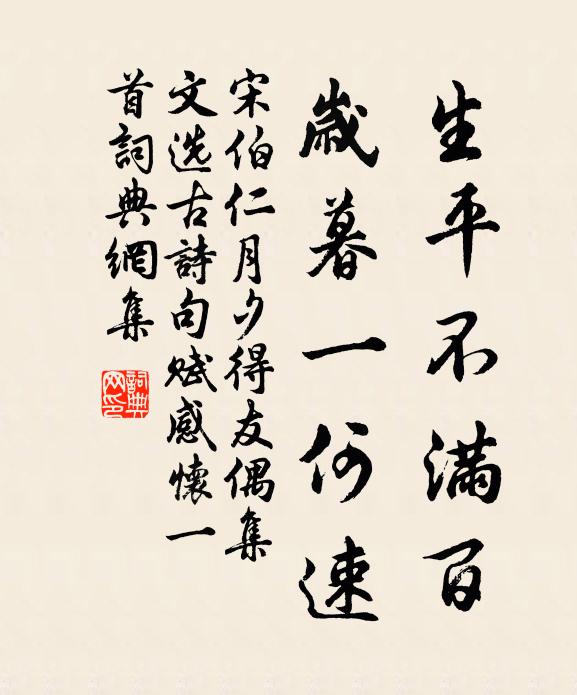 生平不滿百
歲暮一何速
宋伯仁月夕得友偶集
文选古詩句賦感懷一
首詞典網集
詞典
网印